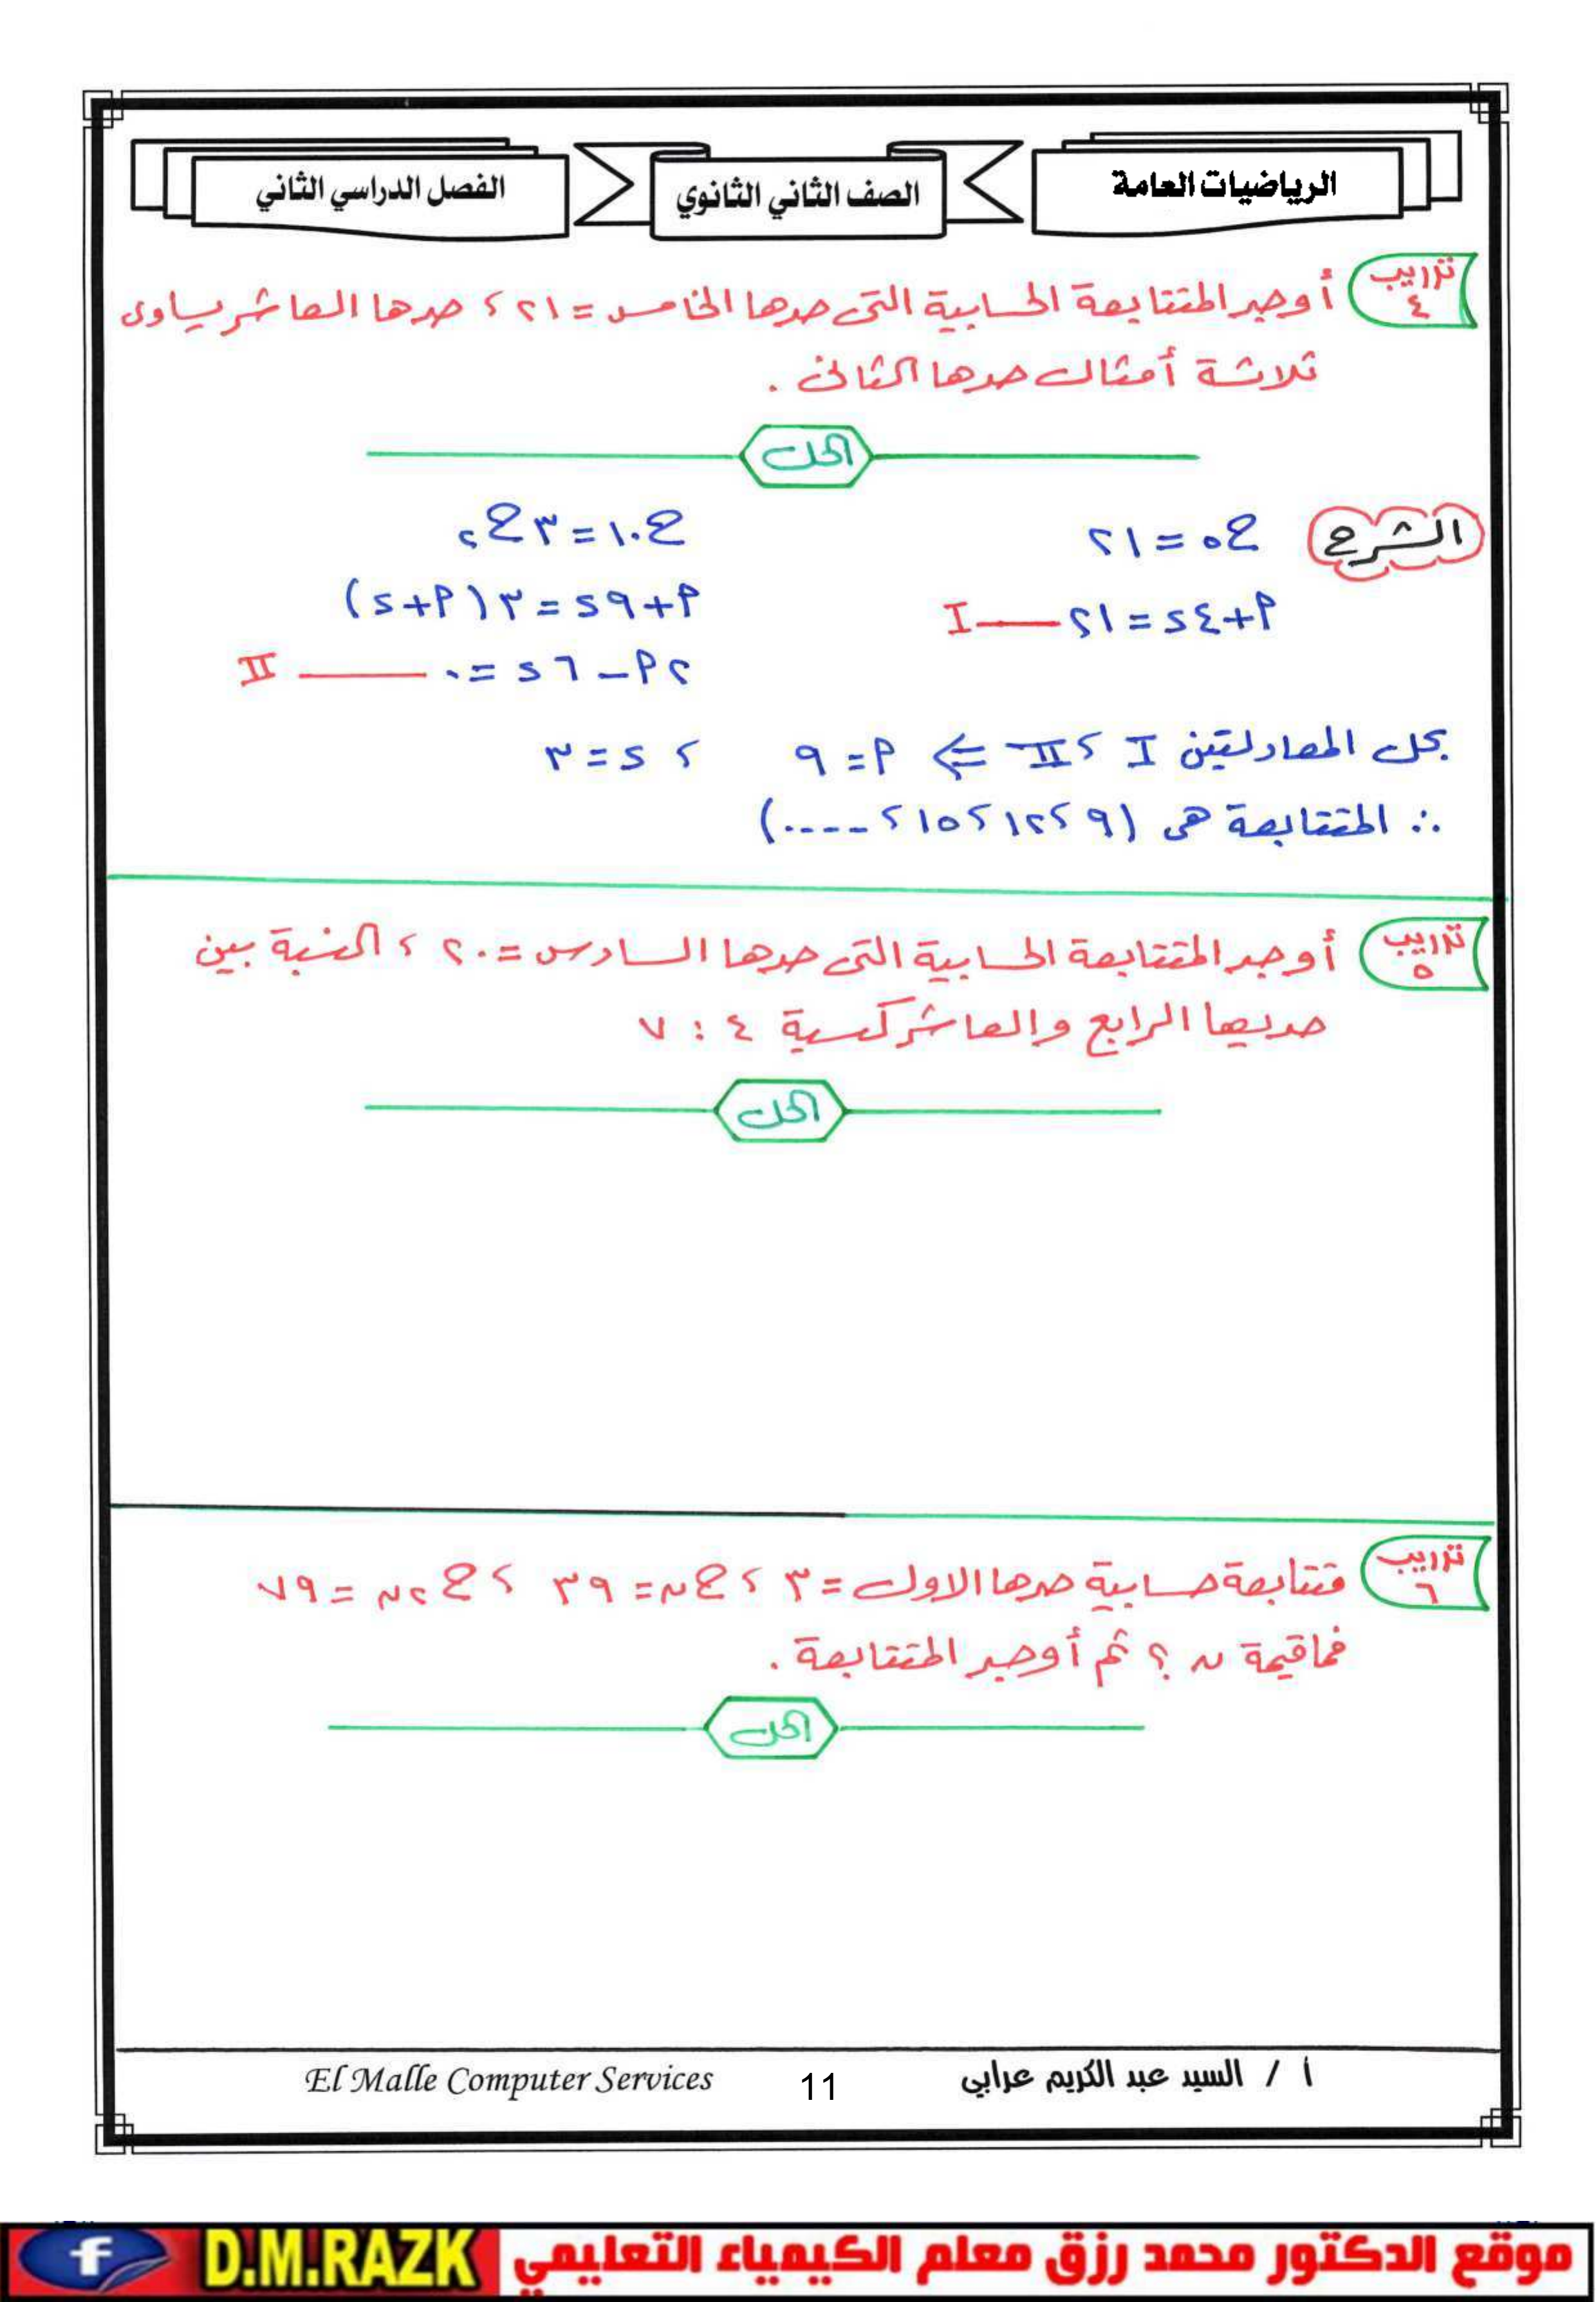 الرياضيات العامة
الصف الثاني الثانوي
الفصل الدراسي الثاني
تدريب ٤
أوجد المتتابعة الحسابية التى حدها الخامس = ٢١ ، حدها العاشر يساوى
ثلاثة أمثال حدها الثانى .
الحل
الشرح
ح٥ = ٢١
ح١٠ = ٣ح٢
أ + ٤د = ٢١ —— I
أ + ٩د = ٣ (أ + د)
٢أ – ٦د = ٠ —— II
بحل المعادلتين I ، II ⇐ أ = ٩ ، د = ٣
∴ المتتابعة هى (٩ ، ١٢ ، ١٥ ، ....)
تدريب ٥
أوجد المتتابعة الحسابية التى حدها السادس = ٢٠ ، النسبة بين
حديها الرابع والعاشر كنسبة ٤ : ٧
الحل
تدريب ٦
متتابعة حسابية حدها الاول = ٣ ، حن = ٣٩ ، ح٢ن = ٧٩
فماقيمة ن ؟ ثم أوجد المتتابعة .
الحل
أ / السيد عبد الكريم عرابي
11
El Malle Computer Services
موقع الدكتور محمد رزق معلم الكيمياء التعليمي
D.M.RAZK
f